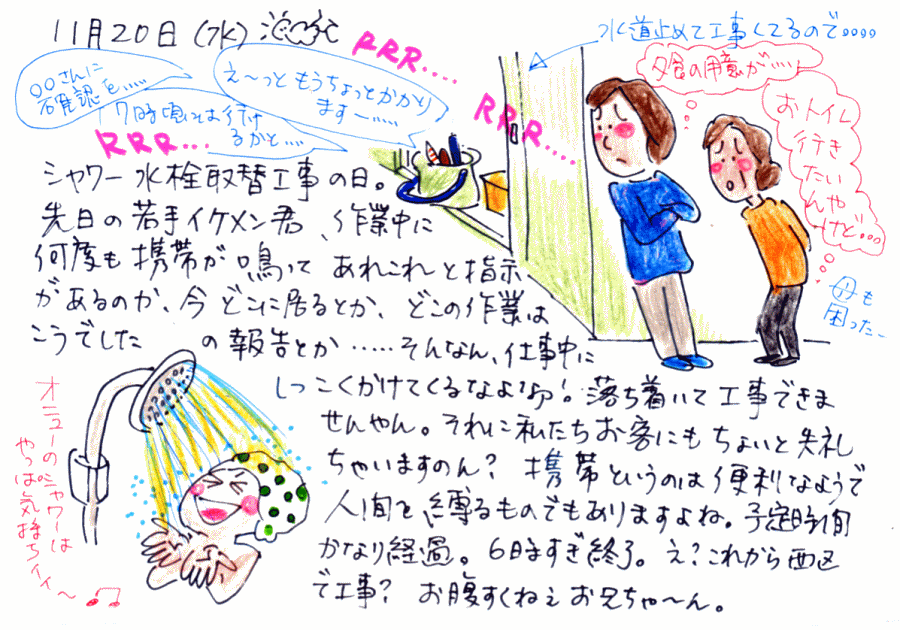 11月20日(水)
RRR....
RRR....
RRR...
〇〇さんに
確認を.....
7時頃には行け
るかと....
え〜っと もうちょっとかかり
ます〜.....
水道止めて工事してるので....
夕食の用意が.....
おトイレ
行き
たい
んや
けど...
母も
困った〜
シャワー水栓取替工事の日。
先日の若手イケメン君、作業中に
何度も携帯が鳴って あれこれと指示
があるのか、今どこに居るとか、どこの作業は
こうでした の報告とか……そんなん、仕事中に
しつこくかけてくるなよなぁ!落ち着いて工事できま
せんやん。それに私たちお客にもちょいと失礼
ちゃいますのん? 携帯というのは便利なようで
人間を縛るものでもありますよね。予定時間
かなり経過。6時すぎ終了。え?これから西区
で工事? お腹すくねぇお兄ちゃ〜ん。
オニューのシャワーは
やっぱ気持ちイイ〜♫